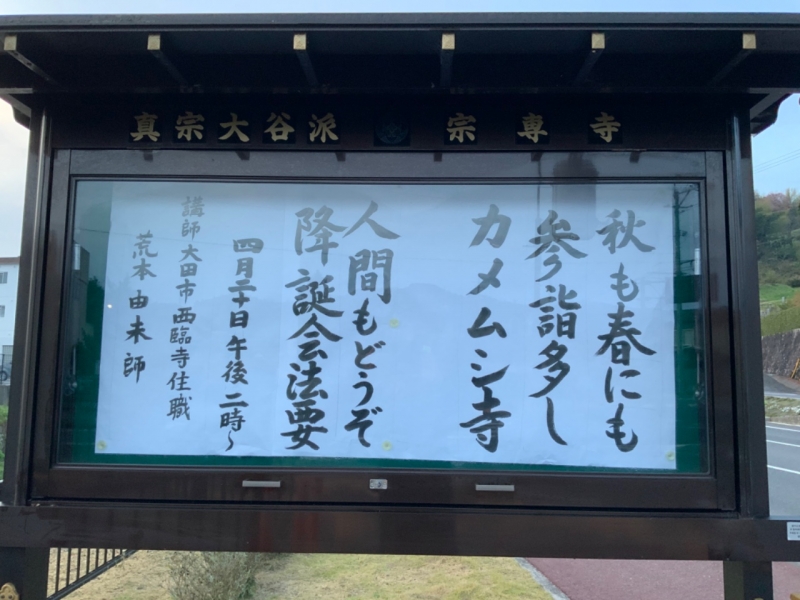 真宗大谷派 宗専寺
秋も春にも
参り詣多し
カメムシ寺
人間もどうぞ
降誕会法要
四月二十日午後二時〜
講師大田市西臨寺住職
荒本由未師